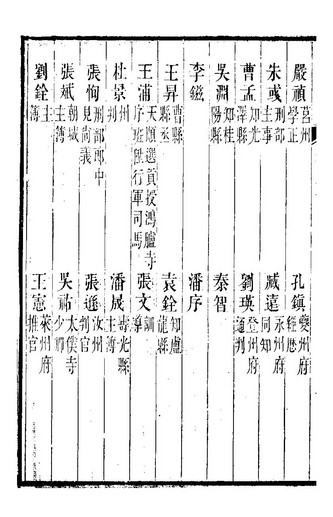 嚴禎 莒州學正 孔鎮 夔州府經歷
朱彧 刑部主事 臧遠 永州府同知
曹孟 知光澤縣 劉瑛 登州府通判
吳淵 知桂陽縣 秦智
李鎡 潘序
王昇 曹縣縣丞 袁銓 知盧龍縣
王浦 天順選貢授鴻臚寺序班陞行軍司馬 張文 訓導
杜景 州判 潘成 壽光縣主簿
張恂 刑部郎中見尚義 張遜 汝州判官
張斌 朝城主簿 吳祐 太僕寺少卿
劉銓 主簿 王憲 萊州府推官